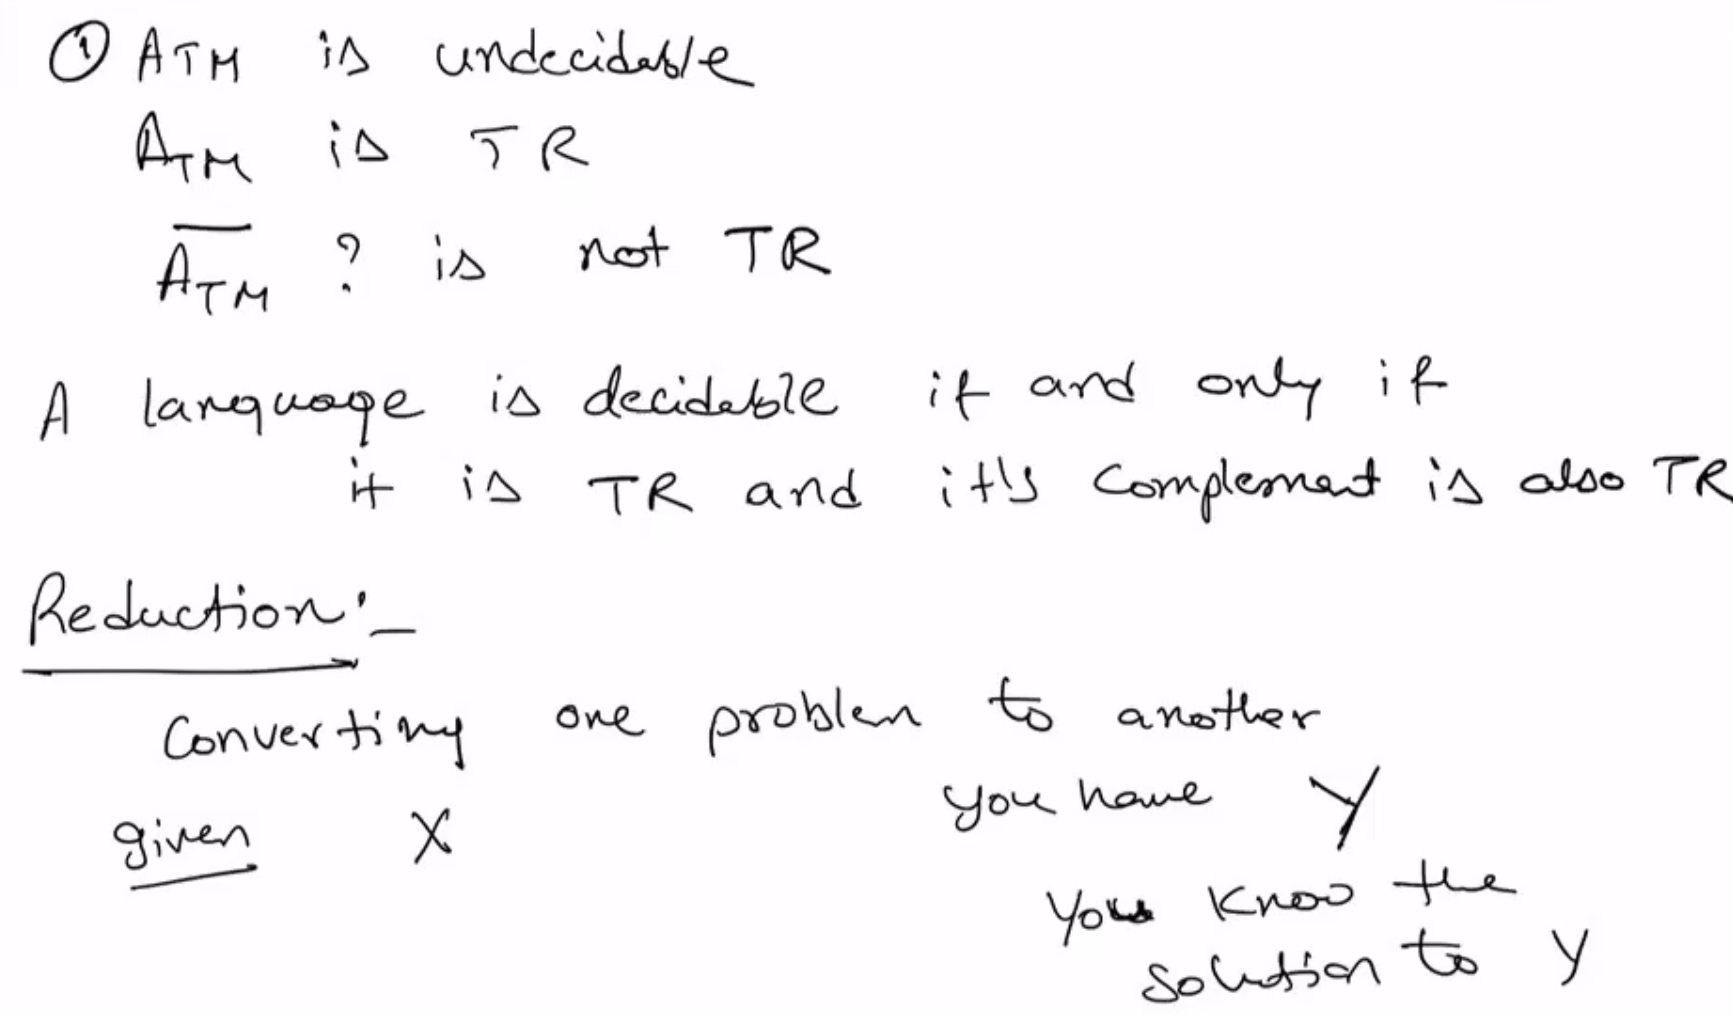 ① ATM is undecidable
ATM is TR
A̅T̅M̅ ? is not TR
A language is decidable if and only if
it is TR and it's complement is also TR
Reduction:-
Converting one problem to another
given X you have Y
You know the
solution to Y